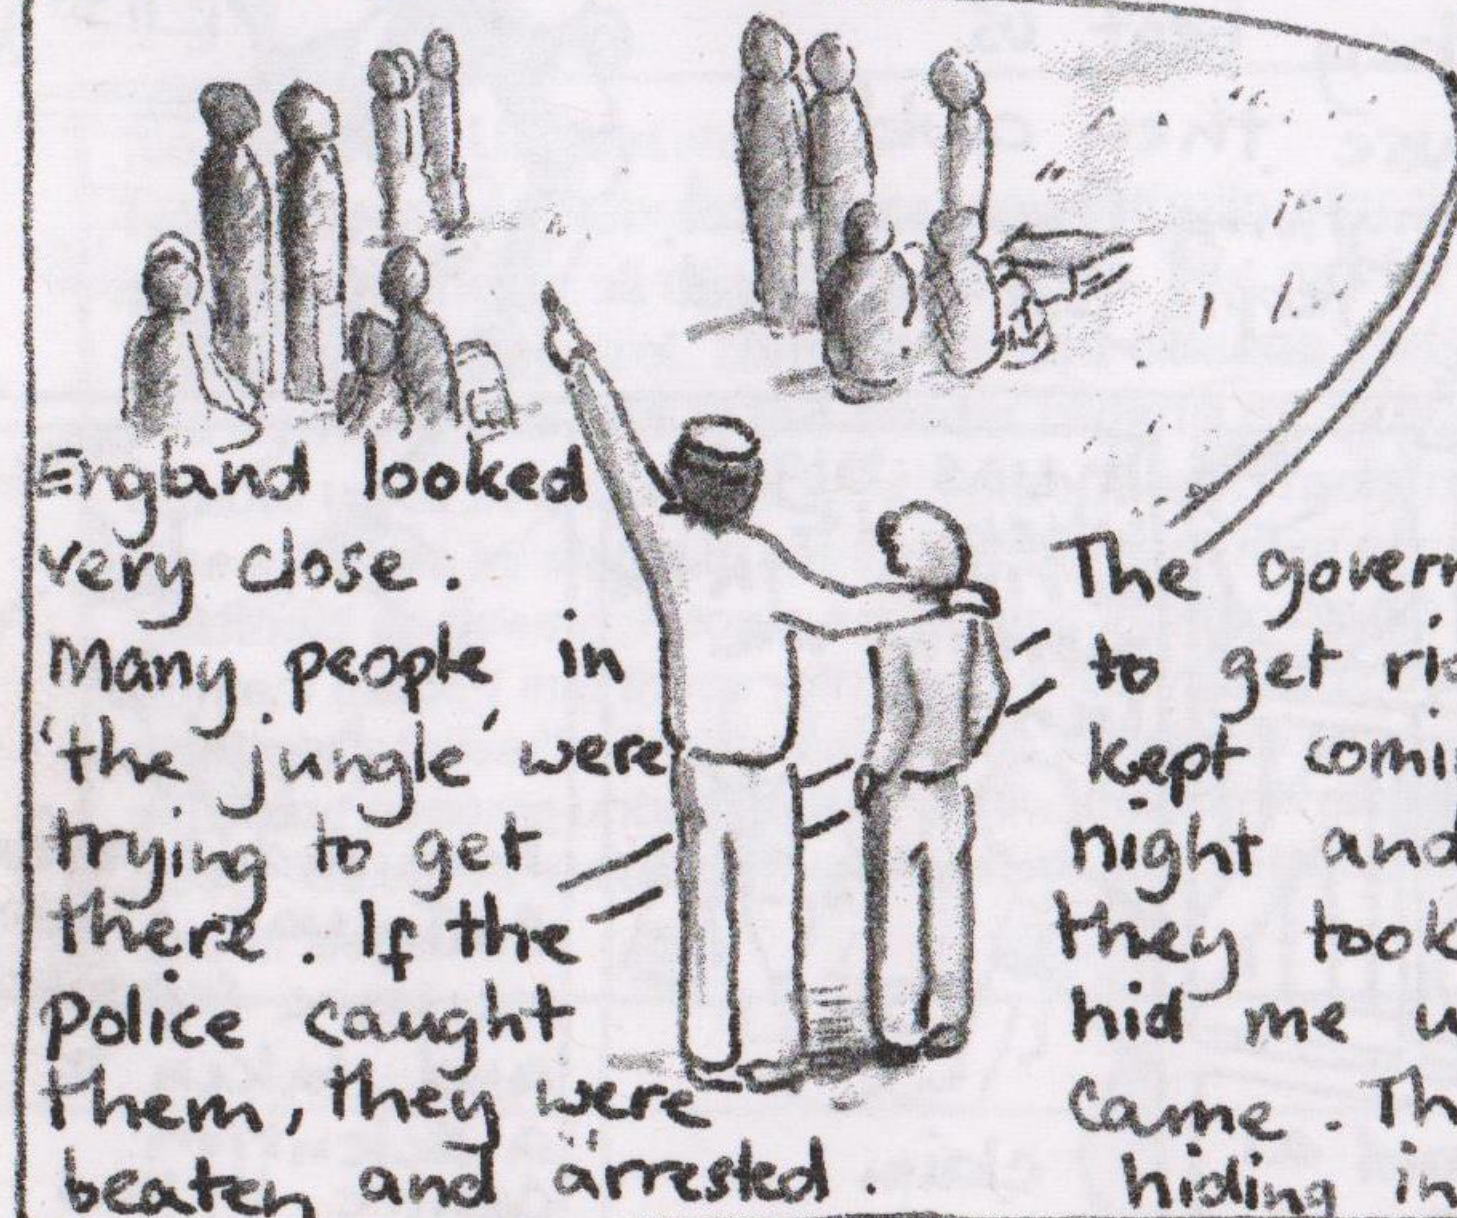 England looked
very close.
Many people in
'the jungle' were
trying to get
there. If the
police caught
them, they were
beaten and arrested.
The govern
to get ri
kept comi
night and
they took
hid me u
came. Th
hiding in